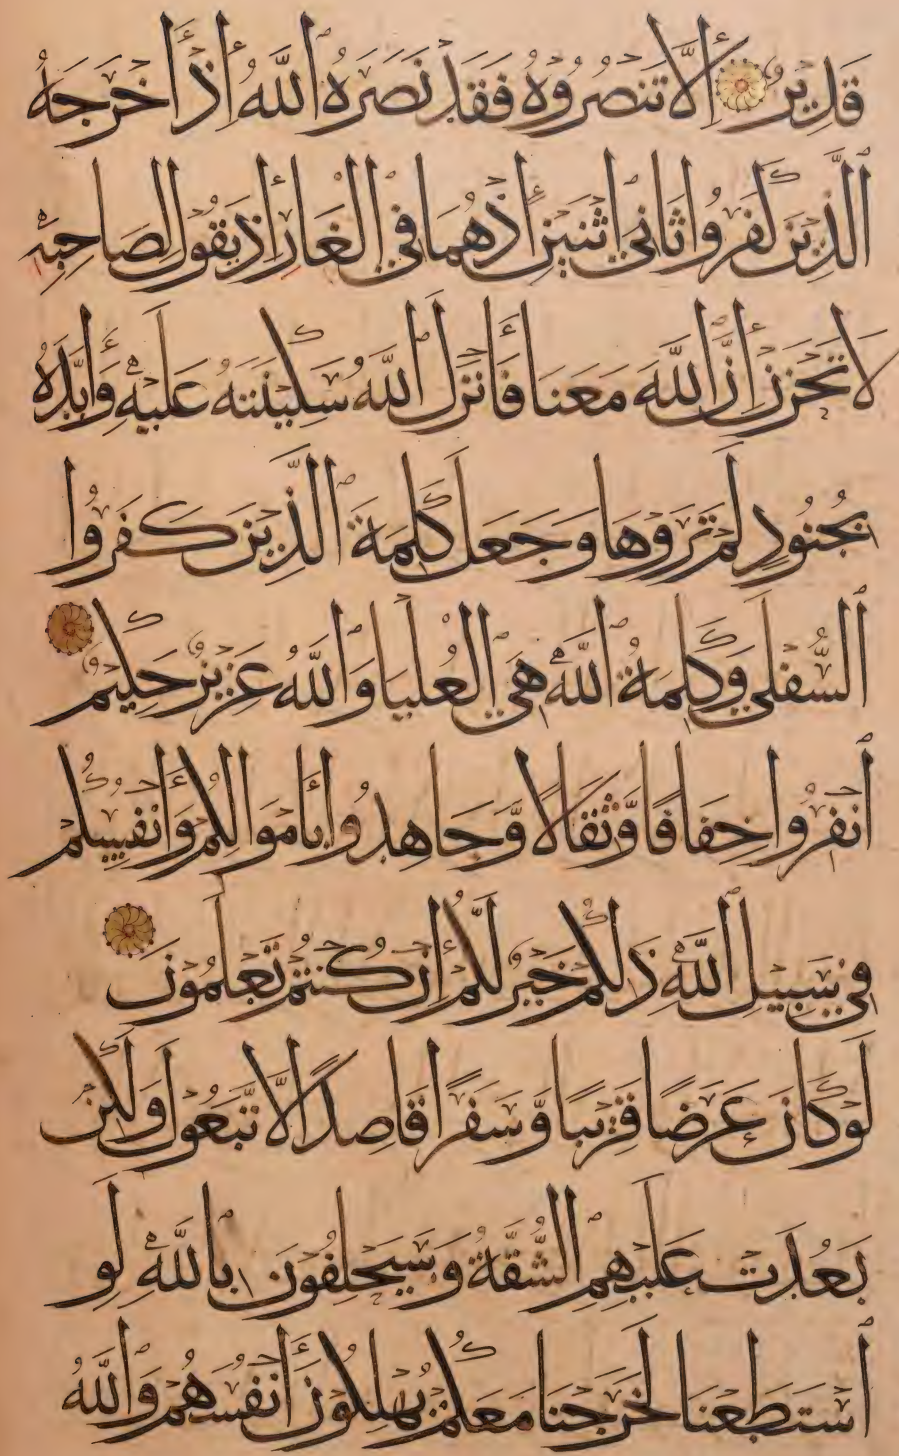 قَدِيرٌ إِلَّا تَنصُرُوهُ فَقَدْ نَصَرَهُ ٱللَّهُ إِذْ أَخْرَجَهُ
ٱلَّذِينَ كَفَرُوا ثَانِيَ اثْنَيْنِ إِذْ هُمَا فِي ٱلْغَارِ إِذْ يَقُولُ لِصَاحِبِهِ
لَا تَحْزَنْ إِنَّ ٱللَّهَ مَعَنَا فَأَنْزَلَ ٱللَّهُ سَكِينَتَهُ عَلَيْهِ وَأَيَّدَهُ
بِجُنُودٍ لَمْ تَرَوْهَا وَجَعَلَ كَلِمَةَ ٱلَّذِينَ كَفَرُوا
ٱلسُّفْلَى وَكَلِمَةُ ٱللَّهِ هِيَ ٱلْعُلْيَا وَٱللَّهُ عَزِيزٌ حَكِيمٌ
ٱنْفِرُوا خِفَافًا وَّثِقَالًا وَّجَاهِدُوا بِأَمْوَالِكُمْ وَأَنْفُسِكُمْ
فِي سَبِيلِ ٱللَّهِ ذَلِكُمْ خَيْرٌ لَّكُمْ إِنْ كُنْتُمْ تَعْلَمُونَ
لَوْ كَانَ عَرَضًا قَرِيبًا وَّسَفَرًا قَاصِدًا لَّاتَّبَعُوكَ وَلَكِنْ
بَعُدَتْ عَلَيْهِمُ ٱلشُّقَّةُ وَسَيَحْلِفُونَ بِٱللَّهِ لَوِ
ٱسْتَطَعْنَا لَخَرَجْنَا مَعَكُمْ يُهْلِكُونَ أَنْفُسَهُمْ وَٱللَّهُ